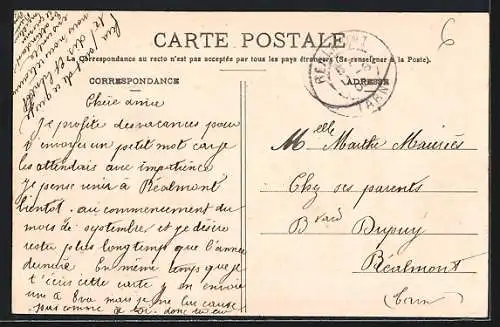 CARTE POSTALE
La Correspondance au recto n'est pas acceptée par tous les pays étrangers (Se renseigner à la Poste).
CORRESPONDANCE
ADRESSE
TARN
6
Chère amie
Je profite des vacances pour
t'envoyer un petit mot car je
les attendais avec impatience
je pense venir à Réalmont
bientôt au commencement du
mois de septembre et je désire
rester plus longtemps que l'année
dernière En même temps que je
t'écris cette carte j'en envoie
une à Eva mais je ne lui cause
pas comme à toi donc
Melle Marthe Mauriès
Chez ses parents
Bvard Dupuy
Réalmont
(Tarn)